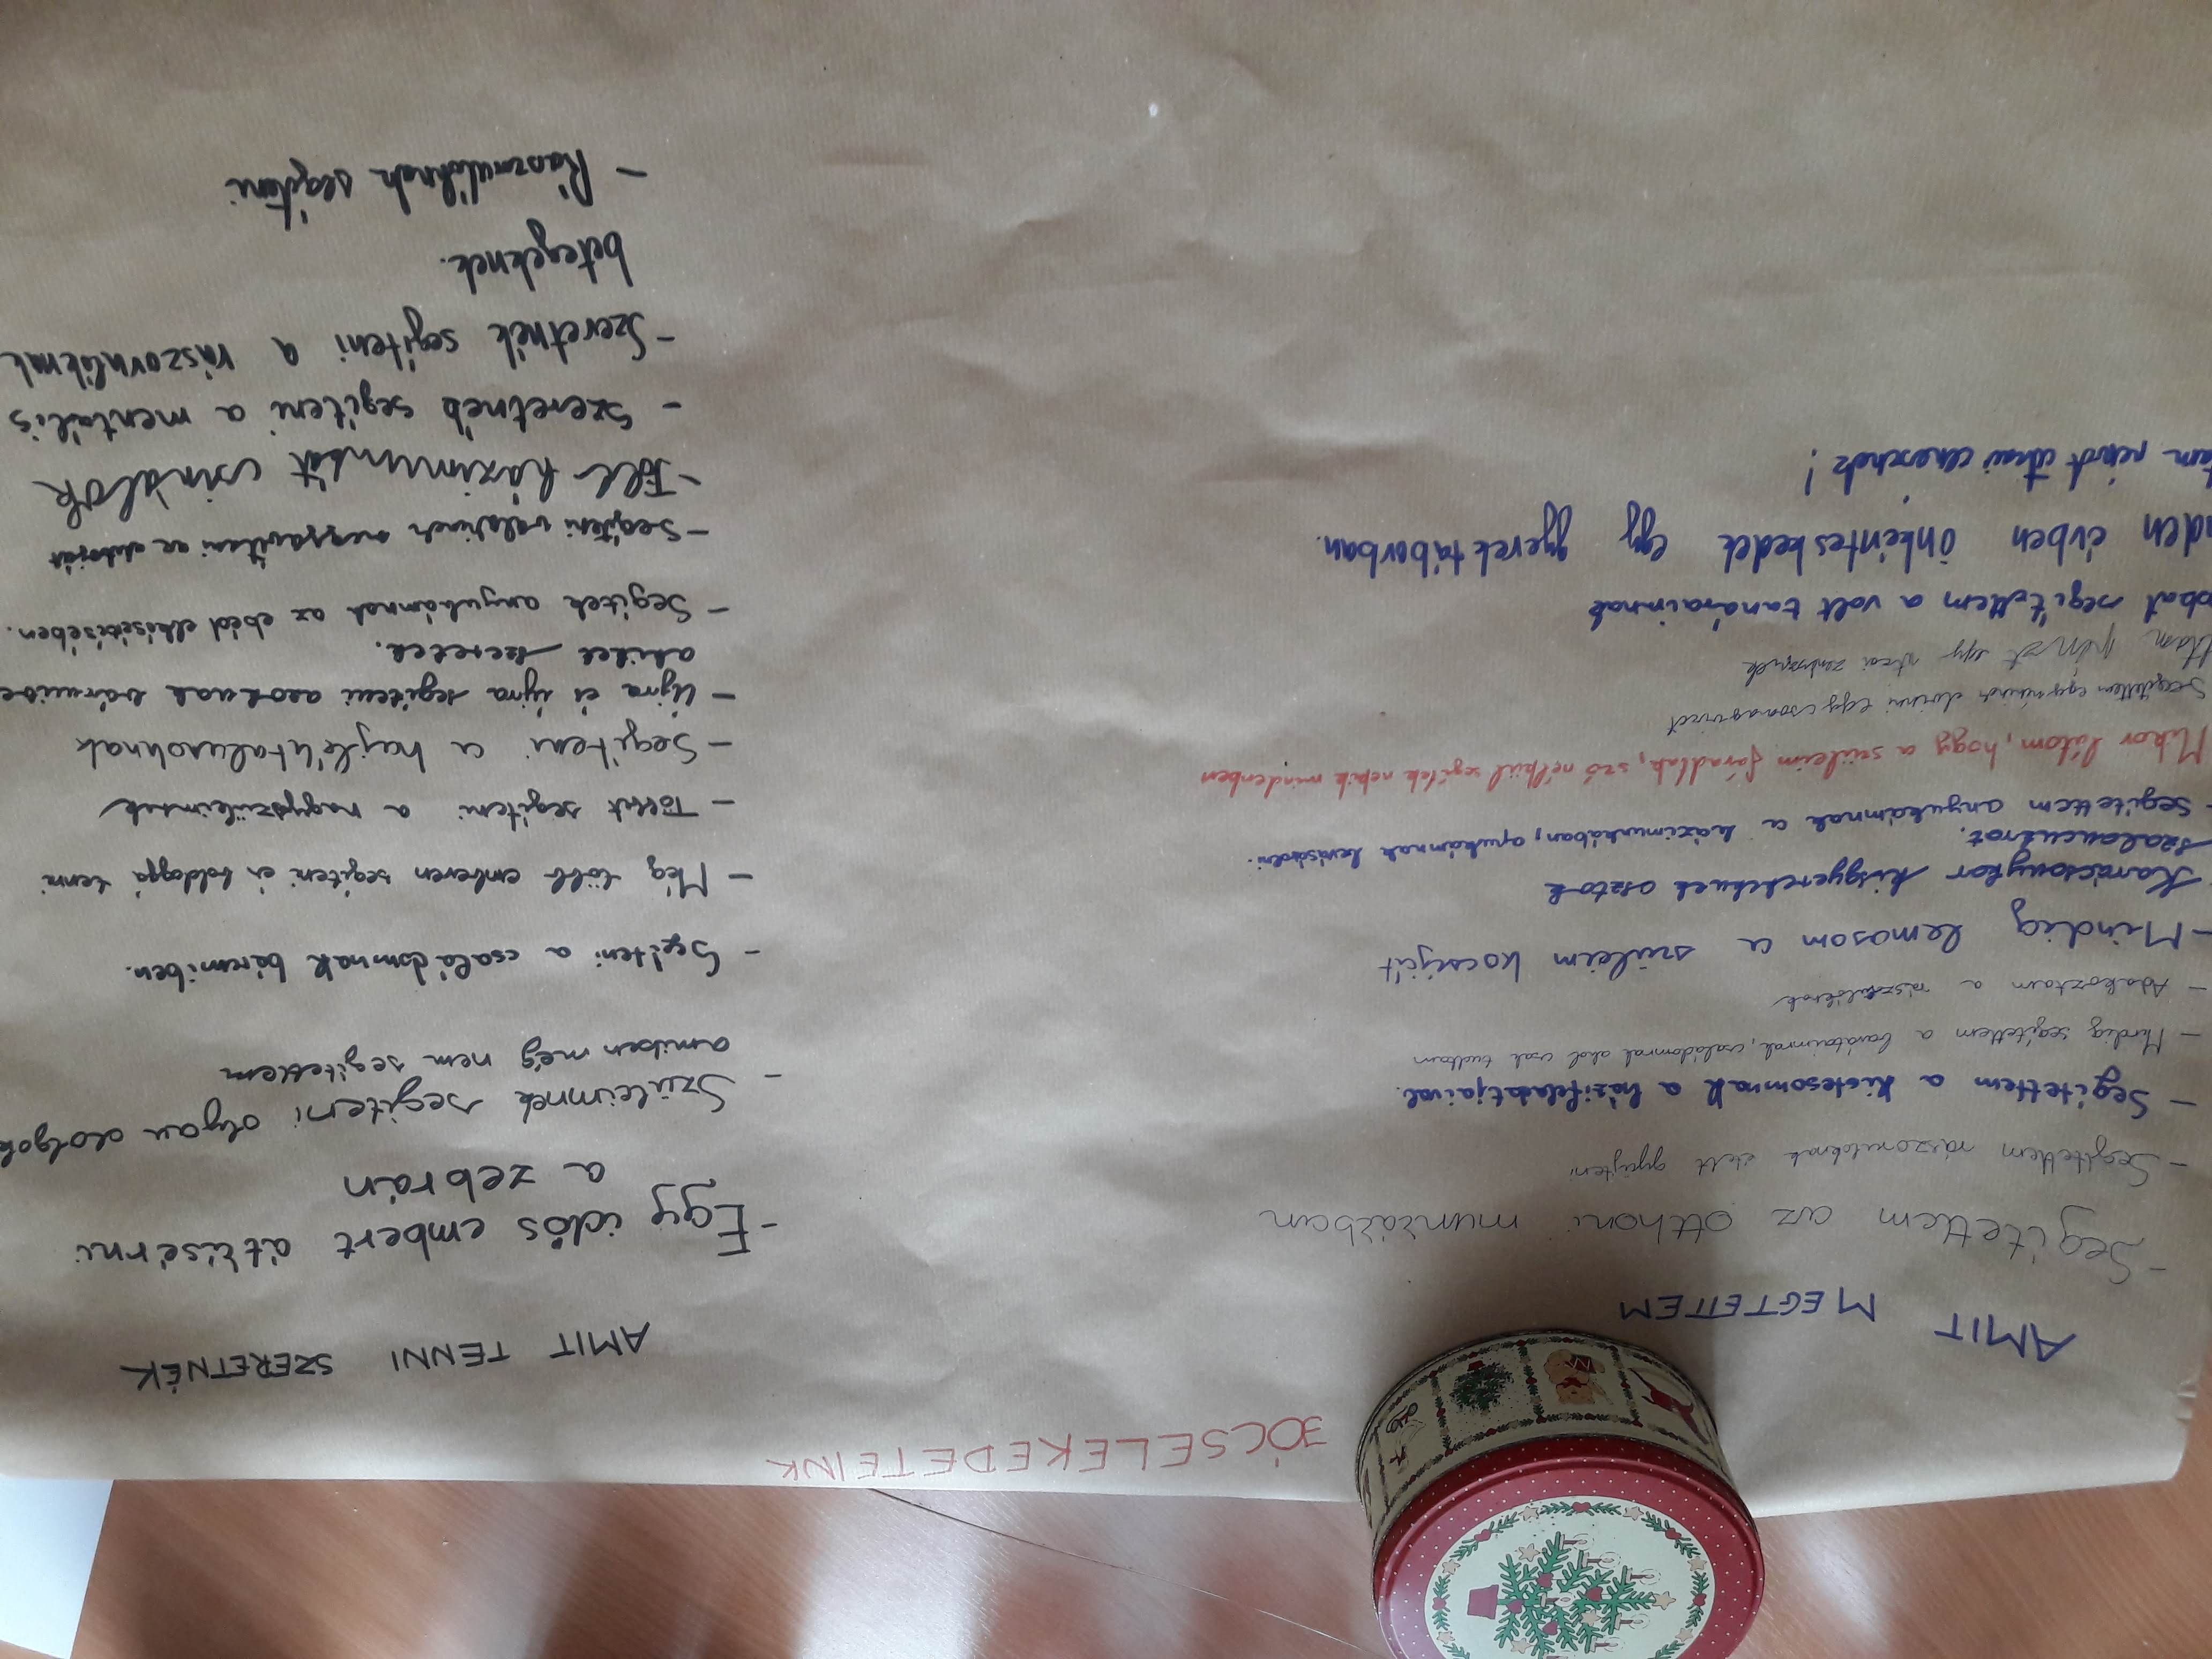 JÓCSELEKEDETEINK
AMIT MEGTETTEM
- Segítettem az otthoni munkában
- Segítettem rászorulóknak ételt gyűjteni
- Segítettem a kistesómnak a házifeladatjaival.
- Mindig segítettem a barátaimnak, családomnak ahol csak tudtam
- Adakoztam a rászorulóknak
- Mindig lemosom a szüleim kocsiját
- Karácsonykor kisgyerekeknek osztok
szaloncukrot.
- Segítettem anyukámnak a házimunkában, apukámnak bevásárolni.
Mikor látom, hogy a szüleim fáradtak, szó nélkül segítek nekik mindenben
Segítettem egy néninek elvinni egy csomagját
pénzt egy utcai zenésznek
segítettem a volt tanáraimnak
évben önkénteskedek egy gyerektáborban.
AMIT TENNI SZERETNÉK
- Egy idős embert átkísérni
a zebrán
- Szüleimnek segíteni olyan dolgok
amiben még nem segítettem
- Segíteni a családomnak bármiben.
- Még több emberen segíteni és boldoggá tenni
- Többet segíteni a nagyszüleimnek
- Segíteni a hajléktalanoknak
- Újra és újra segíteni azoknak bármibe
akiket szeretek.
- Segítek anyukámnak az ebéd elkészítésében.
- Segíteni valakinek megjavítani az autóját
- Több házimunkát csinálok
- Szeretnék segíteni a mentális
- Szeretnék segíteni a rászorulóknak
betegeknek.
- Rászorulóknak segíteni